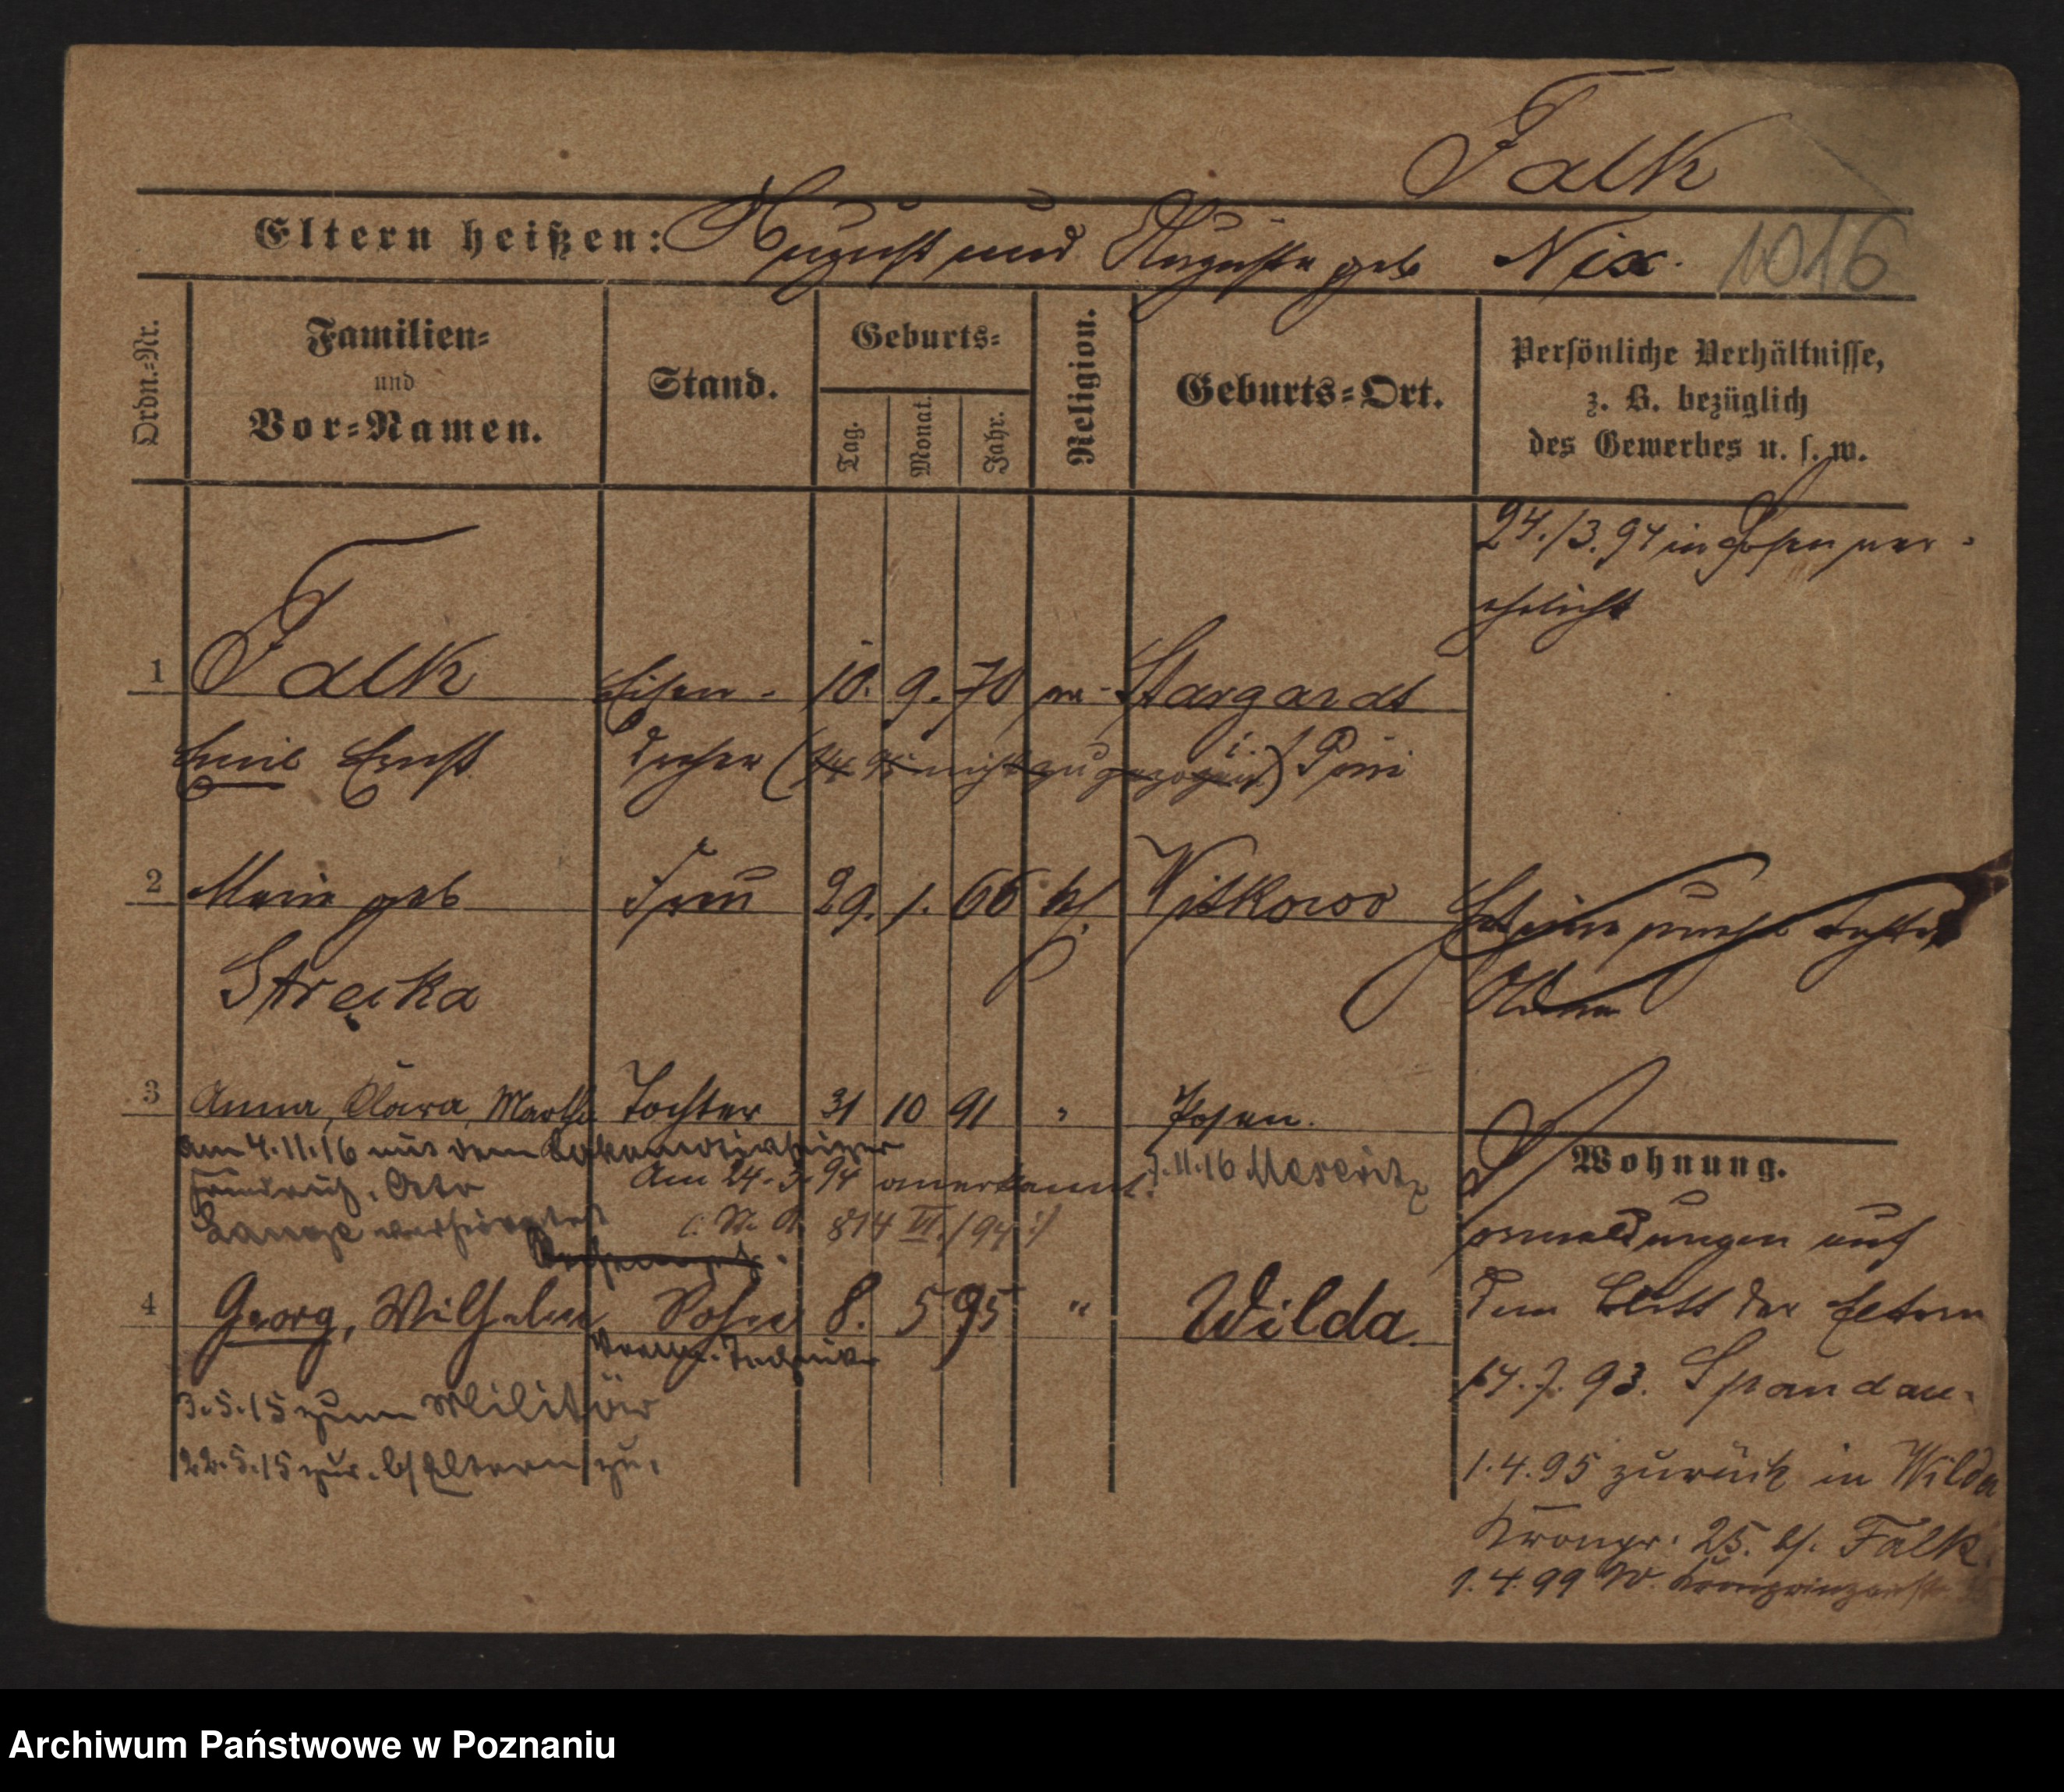 Falk
Eltern heißen: August und Auguste geb Nix. 1016
Ordn.-Nr.
Familien-
und
Vor-Namen.
Stand.
Geburts-
Tag.
Monat.
Jahr.
Religion.
Geburts-Ort.
Persönliche Verhältnisse,
z. B. bezüglich
des Gewerbes u. s. w.
24./3.94 in Posen ver-
ehelicht
1 Falk Eisen- 10. 9. 70 ev- Stargardt
Emil Ernst dreher (nicht zugezogen) i. Pom
2 Marie geb Frau 29. 1. 66 kf. Witkowo
Stręcka
3 Anna, Clara, Martha Tochter 31 10 91 " Posen.
Am 4.11.16 mit dem Lokomotivheizer
Friedrich, Otto
Am 24.3.94 anerkannt.
7.11.16 Meseritz
Lange verheiratet
814 VI./94
4 Georg, Wilhelm Sohn 8. 5 95 " Wilda.
Techniker
3.5.15 zum Militär
22.5.15 zur. b/Eltern zu.
Wohnung.
Vormeldungen auf
dem Blatt der Eltern
14.7.93. Spandau.
1.4.95 zurück in Wilda
Kronpr. 25. b/. Falk.
1.4.99 W. Kronprinzenstr
Archiwum Państwowe w Poznaniu